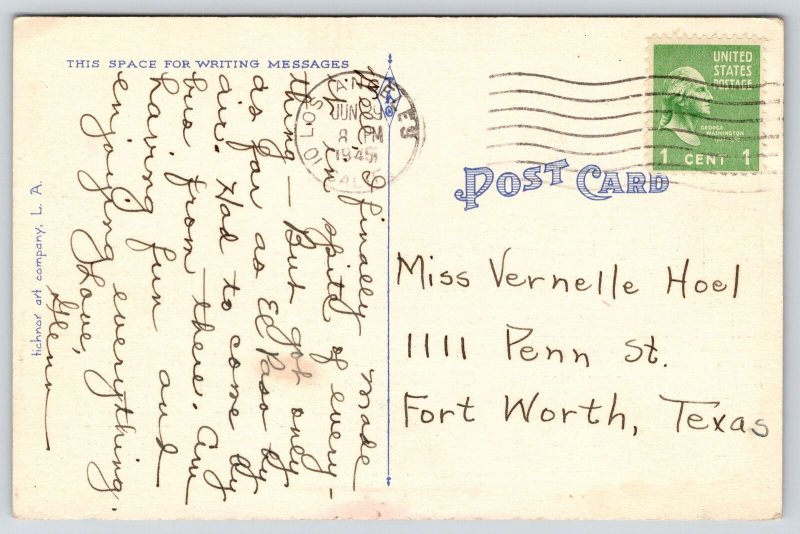 THIS SPACE FOR WRITING MESSAGES
finally made
it in spite of every-
thing — But got only
as far as El Paso by
air. Had to come by
bus from there. Am
having fun and
enjoying everything.
Love,
Glenn
tichnor art company, L. A.
LOS ANGELES
JUN 9
8 PM
1945
UNITED
STATES
POSTAGE
GEORGE
WASHINGTON
1 CENT 1
POST CARD
Miss Vernelle Hoel
1111 Penn St.
Fort Worth, Texas